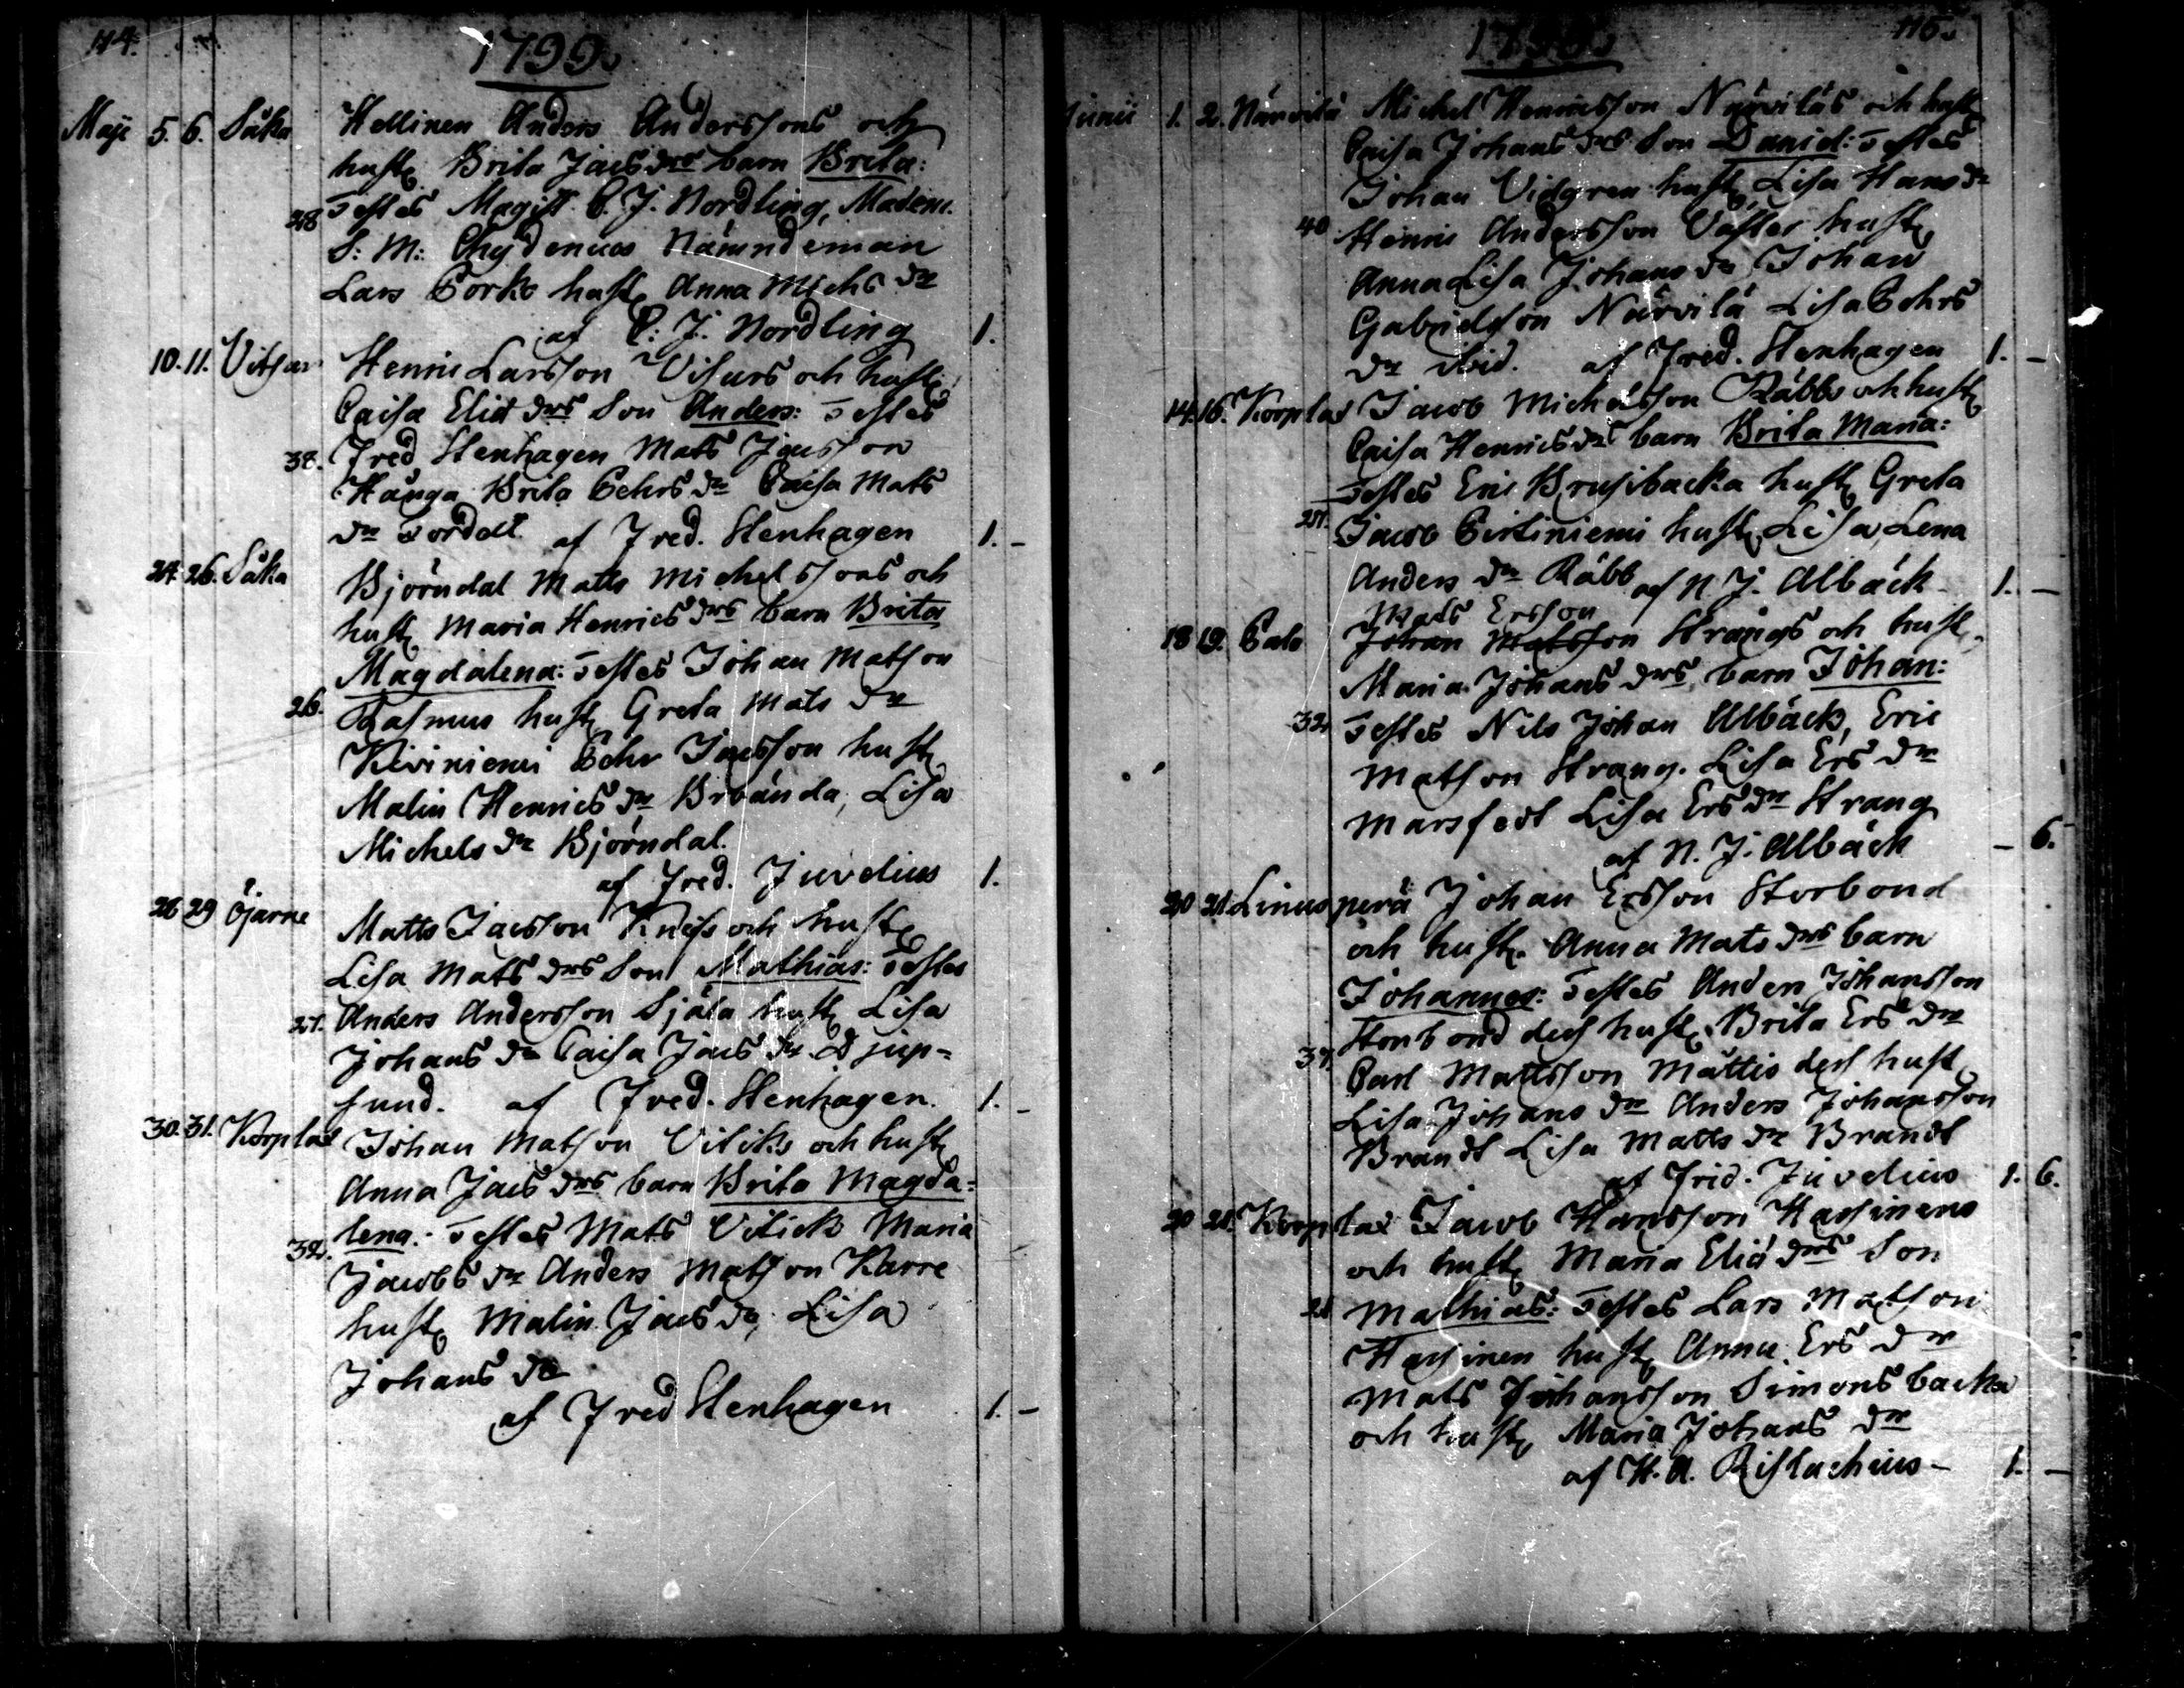 114.
1799.
Maji 5. 6. Såka Hellinen Anders Anderssons och
hust. Brita Jacs drs barn Brita:
28 Testes Magist. C. J. Nordling, Madem.
S: M: Chydenius Nämndeman
Lars Torko hust. Anna Michs dr
af C: J. Nordling 1.
10. 11. Vitsar Henric Larsson Visurs och hust.
Caisa Eliæ drs Son Anders: Testes
38. Fred Stenhagen Mats Jacsson
Hånga Brita Gehrs dr Caisa Mats
dr Tordell af Fred. Stenhagen 1. -
24. 26. Såka Björndal Matts Michelssons och
hust. Maria Henrics drs barn Brita
Magdalena: Testes Johan Matson
26. Rasmus hust. Greta Mats dr
Kiviniemi Gehr Jacsson hust.
Malin Henrics dr Brbända, Lisa
Michels dr Björndal.
af Fred. Juvelius 1.
28 29 Öjarne Matts Jacsson Knifs och hust.
Lisa Mats drs Son Mathias: Testes
27. Anders Andersson Själa hust. Lisa
Johans dr Caisa Jacs dr Djup-
sund. af Fred. Stenhagen. 1. -
30. 31. Korplax Johan Matson Vitiks och hust.
Anna Jacs drs barn Brita Magda-
lena: Testes Mats Vitick Maria
32. Jacobs dr Anders Matson Karre
hust. Malin Jacs dr, Lisa
Johans dr
af Fred Stenhagen 1. -
115.
1799.
Junii 1. 2. Närvilä Michel Henricsson Närviläs och hust.
Caisa Johans drs Son Daniel: Testes
Johan Vidgren hust. Lisa Hans dr
40 Henric Andersson Vaster hust.
Anna Lisa Johans dr, Johan
Gabrielsson Närvilä Lisa Gehrs
dr ibid. af Fred. Stenhagen 1. -
14. 16. Korplax Jacob Michelsson Räbbs och hust.
Caisa Henrics drs barn Brita Maria:
Testes Eric Brusibacka hust. Greta
Jacob Tirtiniemi hust. Lisa, Lena
Anders dr Räbb af N J. Albäck 1. -
Mats Ersson
18 19. Calo Johan Matsson Strangs och hust.
Maria Johans drs barn Johan:
32 Testes Nils Johan Albäck, Eric
Matson Strang. Lisa Ers dr
Marsfedt Lisa Ers dr Strang
af N. J. Albäck - 6.
20 21 Linusperä Johan Ersson Storbond
och hust. Anna Mats drs barn
Johannes: Testes Anders Johansson
Storbond dess hust. Brita Ers dr
37. Carl Mattsson Mattis dess hust
Lisa Johans dr Anders Johansson
Brandt Lisa Matts dr Brandt
af Frid. Juvelius 1. 6.
20 21. Korplax Jacob Hansson Hassinens
och hust. Maria Eliæ drs Son
21 Mathias: Testes Lars Matson
Hassinen hust. Anna Ers dr
Mats Johansson Simonsbacka
och hust. Maria Johans dr
af H. A. Ristachius - 1. -